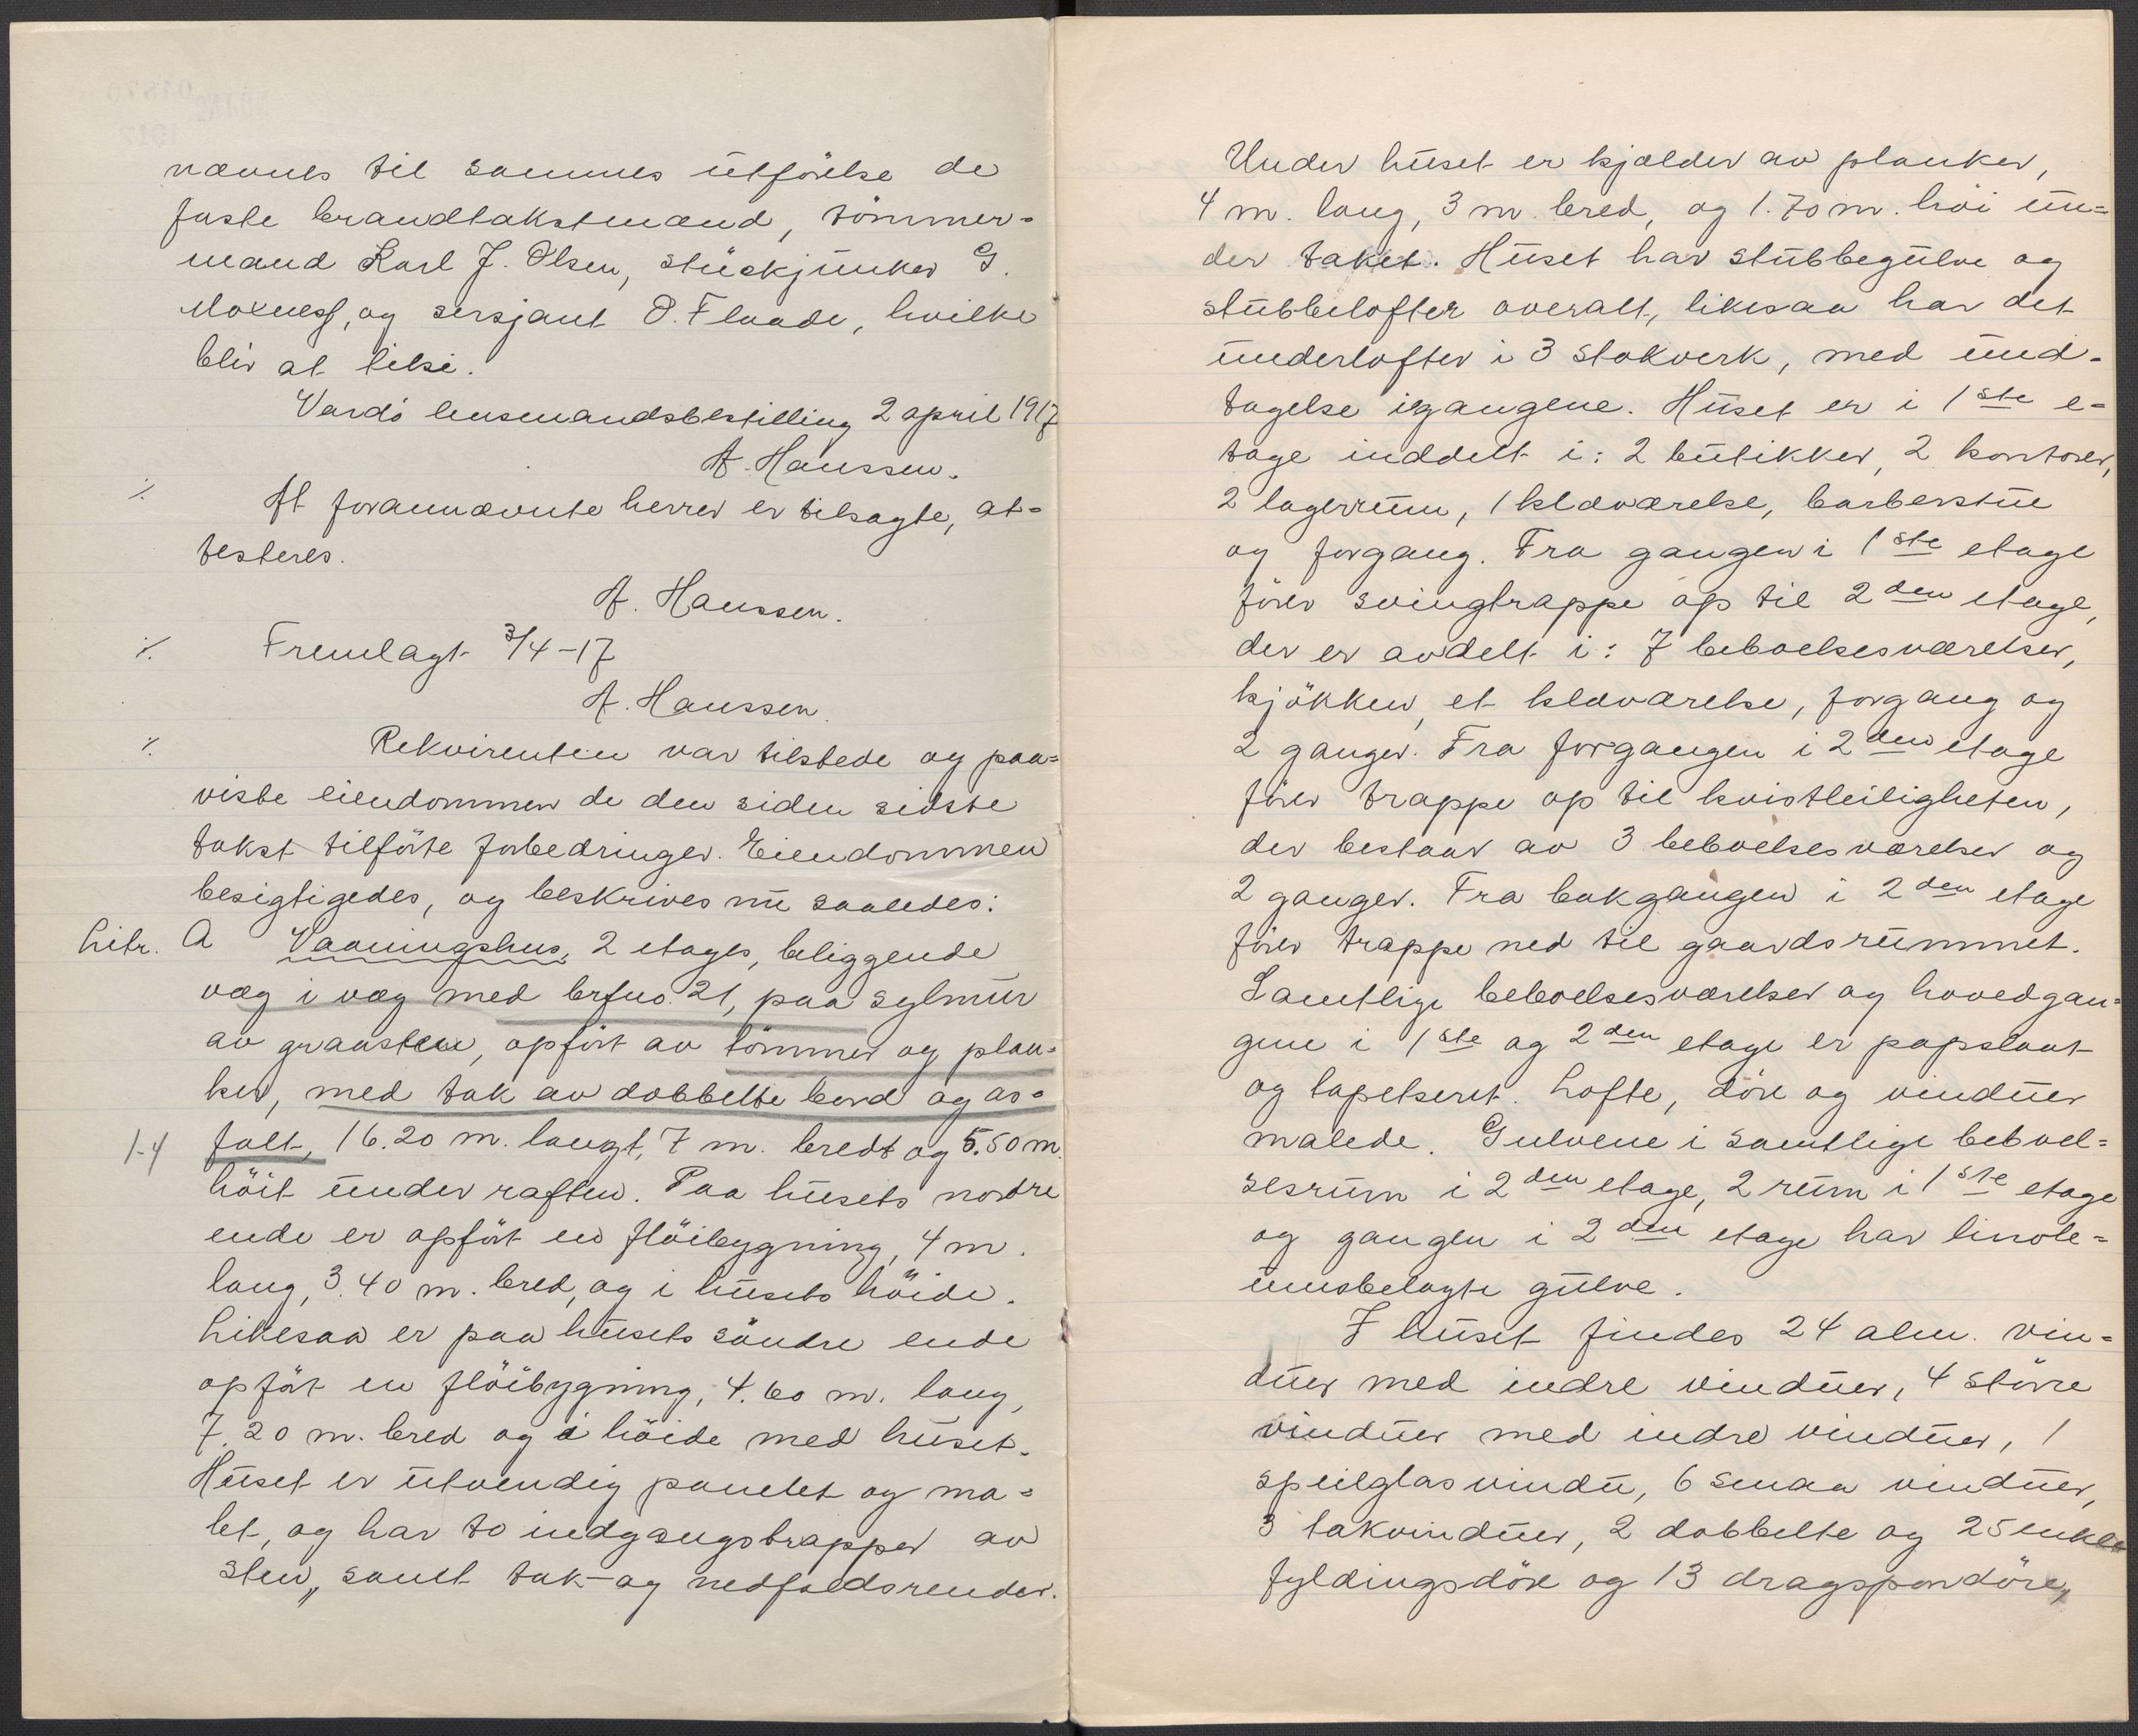 nævnes til sammes utförelse de
faste brandtakstmænd, tömmer=
mand Karl J. Olsen, stückjunker G.
Moxness, og sersjant O. Flaade, hvilke
blir at tilsi.
Vardö lensmandsbestilling 2 april 1917
A. Hanssen.
٪ At forannævnte herrer er tilsagte, at=
testeres.
A. Hanssen.
٪ Fremlagt 3/4-17
A. Hanssen.
٪ Rekvirenten var tilstede og paa=
viste eiendommen de den siden sidste
takst tilförte forbedringer. Eiendommen
besigtigedes, og beskrives nu saaledes:
Litr. A Vaaningshus, 2 etages, beliggende
væg i væg med brfno. 21, paa sylmur
av graasten, opfört av tömmer og plan=
ker, med tak av dobbelte bord og as=
1-4 falt, 16.20 m. langt, 7 m. bredt og 5.50 m.
höit under raften. Paa husets nordre
ende er opfört en flöibygning, 4 m.
lang, 3.40 m. bred, og i husets höide.
Likesaa er paa husets söndre ende
opfört en flöibygning, 4.60 m. lang,
7.20 m. bred og i höide med huset.
Huset er utvendig panelet og ma=
let, og har to indgangstrapper av
sten, samt tak- og nedfaldsrender.
Under huset er kjælder av planker,
4 m. lang, 3 m. bred, og 1.70 m. höi un=
der taket. Huset har stubbegulve og
stubbelofter overalt, likesaa har det
underlofter i 3 stokverk, med und-
tagelse i gangene. Huset er i 1ste e=
tage inddelt i: 2 butikker, 2 kontorer,
2 lagerrum, 1 kldværelse, barberstue
og forgang. Fra gangen i 1ste etage
förer svingtrappe op til 2den etage,
der er avdelt i: 7 beboelsesværelser,
kjökken, et kldværelse, forgang og
2 ganger. Fra forgangen i 2den etage
förer trappe op til kvistleiligheten,
der bestaar av 3 beboelsesværelser og
2 ganger. Fra bakgangen i 2den etage
förer trappe ned til gaardsrummet.
Samtlige beboelsesværelser og hovedgan=
gene i 1ste og 2den etage er papslaat
og tapetseret. Lofte, döre og vinduer
malede. Gulvene i samtlige beboel=
sesrum i 2den etage, 2 rum i 1ste etage
og gangen i 2den etage har linole=
umsbelagte gulve.
I huset findes 24 alm. vin=
duer med indre vinduer, 4 större
vinduer med indre vinduer, 1
speilglasvindu, 6 smaa vinduer,
3 takvinduer, 2 dobbelte og 25 enkle
fyldingsdöre og 13 dragspondöre,